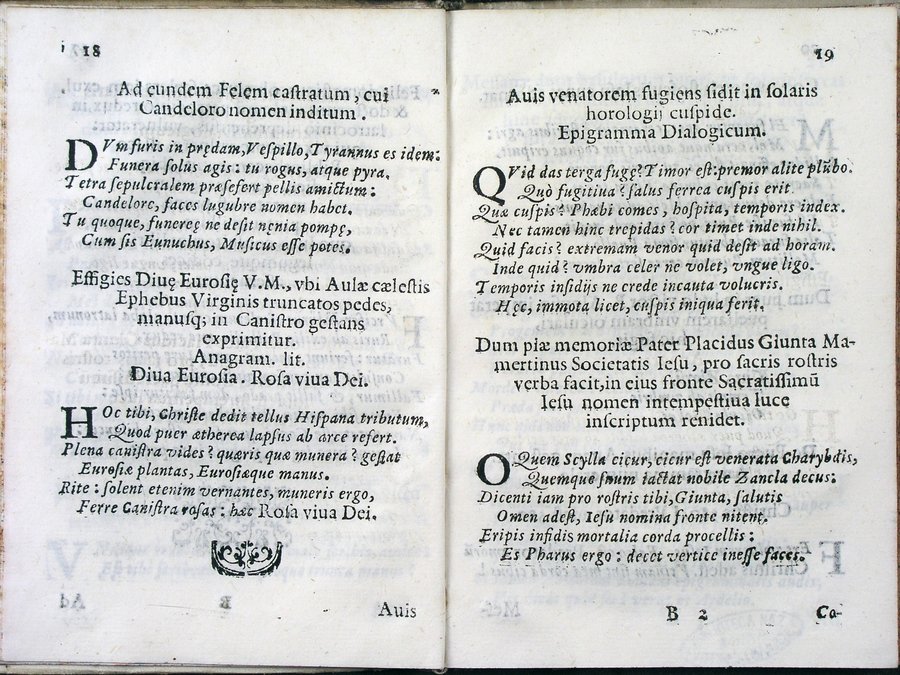 18
Ad eundem Felem castratum, cui
Candeloro nomen inditum.
DVm furis in prędam, Vespillo, Tyrannus es idem:
Funera solus agis: tu rogus, atque pyra.
Tetra sepulcralem præsefert pellis amictum:
Candelore, faces lugubre nomen habet.
Tu quoque, funereę ne desit nęnia pompę,
Cum sis Eunuchus, Musicus esse potes.
Effigies Diuę Eurosię V.M., vbi Aulæ cælestis
Ephebus Virginis truncatos pedes,
manusq; in Canistro gestans
exprimitur.
Anagram. lit.
Diua Eurosia. Rosa viua Dei.
HOc tibi, Christe dedit tellus Hispana tributum,
Quod puer ætherea lapsus ab arce refert.
Plena canistra vides? quæris quæ munera? gestat
Eurosiæ plantas, Eurosiæque manus.
Rite: solent etenim vernantes, muneris ergo,
Ferre Canistra rosas: hæc Rosa viua Dei.
B
Auis
19
Auis venatorem fugiens sidit in solaris
horologij cuspide.
Epigramma Dialogicum.
QVid das terga fugę? Timor est: premor alite plũbo.
Quò fugitiua? salus ferrea cuspis erit
Quæ cuspis? Phæbi comes, hospita, temporis index.
Nec tamen hinc trepidas? cor timet inde nihil.
Quid facis? extremam venor quid desit ad horam.
Inde quid? vmbra celer ne volet, vngue ligo.
Temporis insidijs ne crede incauta volucris.
Hęc, immota licet, cuspis iniqua ferit.
Dum piæ memoriæ Pater Placidus Giunta Ma-
mertinus Societatis Iesu, pro sacris rostris
verba facit, in eius fronte Sacratissimũ
Iesu nomen intempestiua luce
inscriptum renidet.
OQuem Scylla cicur, cicur est venerata Charybdis,
Quemque suum iactat nobile Zancla decus:
Dicenti iam pro rostris tibi, Giunta, salutis
Omen adest, Iesu nomina fronte nitent.
Eripis infidis mortalia corda procellis:
Es Pharus ergo: decet vertice inesse faces.
B 2
Ca-